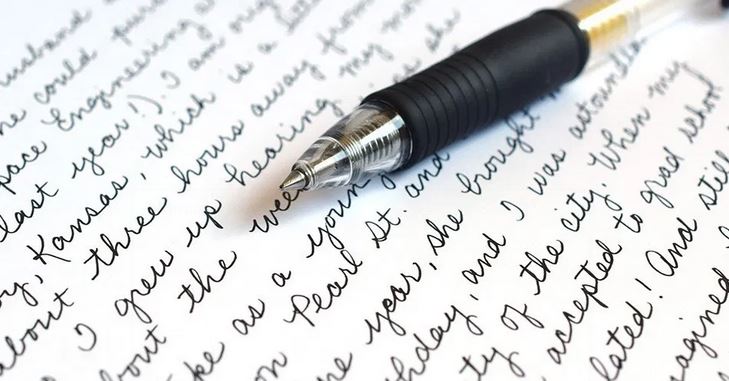 husband
he could
pace Engineering
last year!). I am
Kansas, which is a
about three hours away from
I grew up hearing my mom
the she
as a young
on Pearl St. and
year, she brought
hday, and I was
ty of the city. When my
accepted to grad school
lated! And still
agined